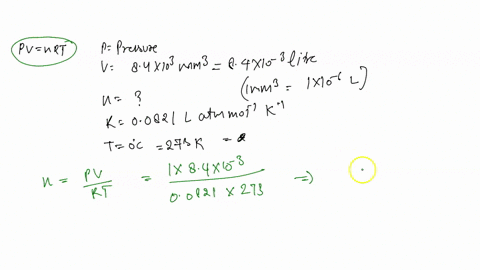 PV=nRT
P= Pressure
V= 8.4×10³ mm³ = 8.4×10⁻³ litre
(1mm³ = 1×10⁻⁶ L)
n= ?
R= 0.0821 L atm mol⁻¹ K⁻¹
T= 0°C = 273 K =
n = PV/RT = 1×8.4×10⁻³/0.0821×273 ⇒